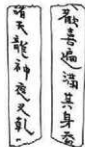 歡喜遍滿其身爾
諸天龍神夜叉乾